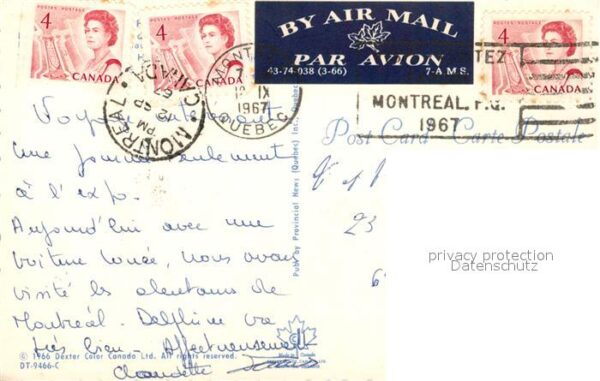 4 POSTES POSTAGE CANADA
4 POSTES POSTAGE CANADA
BY AIR MAIL
PAR AVION
43-74-038 (3-66) 7-A.M.S.
4 POSTES POSTAGE CANADA
MONTREAL
CANADA
PM
MONT
IX
1967
QUEBEC
TEZ
MONTREAL, P.Q.
1967
Post Card Carte Postale
une journée seulement
à l'expo.
Aujourd'hui avec une
voiture louée, nous avons
visité les alentours de
Montréal. Delphine va
très bien. Affectueusement
Claudette
23
Publ by Provincial News (Quebec) Inc., Quebec
© 1966 Dexter Color Canada Ltd. All rights reserved.
DT-9466-C
privacy protection
Datenschutz